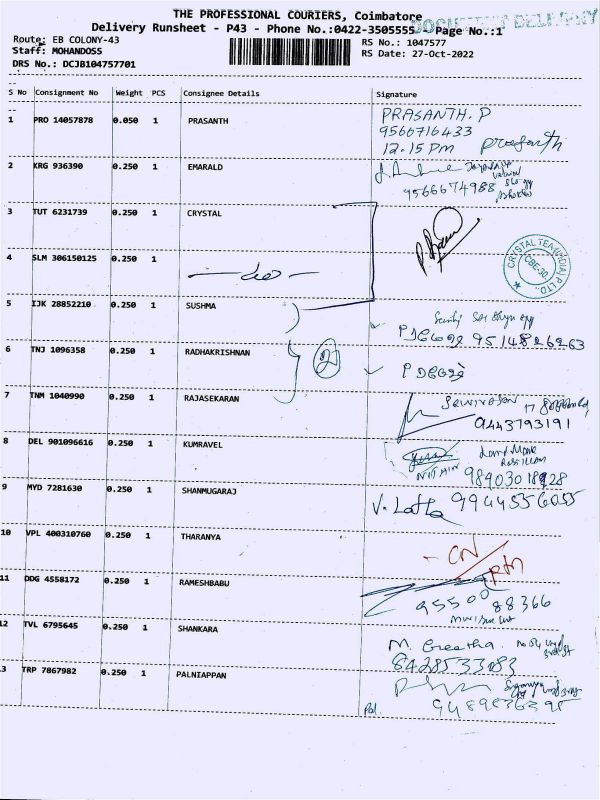 THE PROFESSIONAL COURIERS, Coimbatore
DOCUMENT DELIVERY
Delivery Runsheet - P43 - Phone No.:0422-3505555 Page No.:1
Route: EB COLONY-43
RS No.: 1047577
Staff: MOHANDOSS
RS Date: 27-Oct-2022
DRS No.: DCJB104757701
S No Consignment No Weight PCS Consignee Details Signature
1 PRO 14057878 0.050 1 PRASANTH PRASANTH. P
9566716433
12.15 Pm Prasanth
2 KRG 936390 0.250 1 EMARALD
9566674988
3 TUT 6231739 0.250 1 CRYSTAL
CRYSTAL TEA (INDIA) P LTD. CBE-30
4 SLM 306150125 0.250 1
5 IJK 28852210 0.250 1 SUSHMA
9514826263
6 TNJ 1096358 0.250 1 RADHAKRISHNAN 2
7 TNM 1040990 0.250 1 RAJASEKARAN
9443793191
8 DEL 901096616 0.250 1 KUMRAVEL
NITHIN
9 MYD 7281630 0.250 1 SHANMUGARAJ V. Latha 9944556055
10 VPL 400310760 0.250 1 THARANYA
CN
11 DDG 4558172 0.250 1 RAMESHBABU
95500 88366
12 TVL 6795645 0.250 1 SHANKARA M. Geetha
8428533083
13 TRP 7867982 0.250 1 PALNIAPPAN